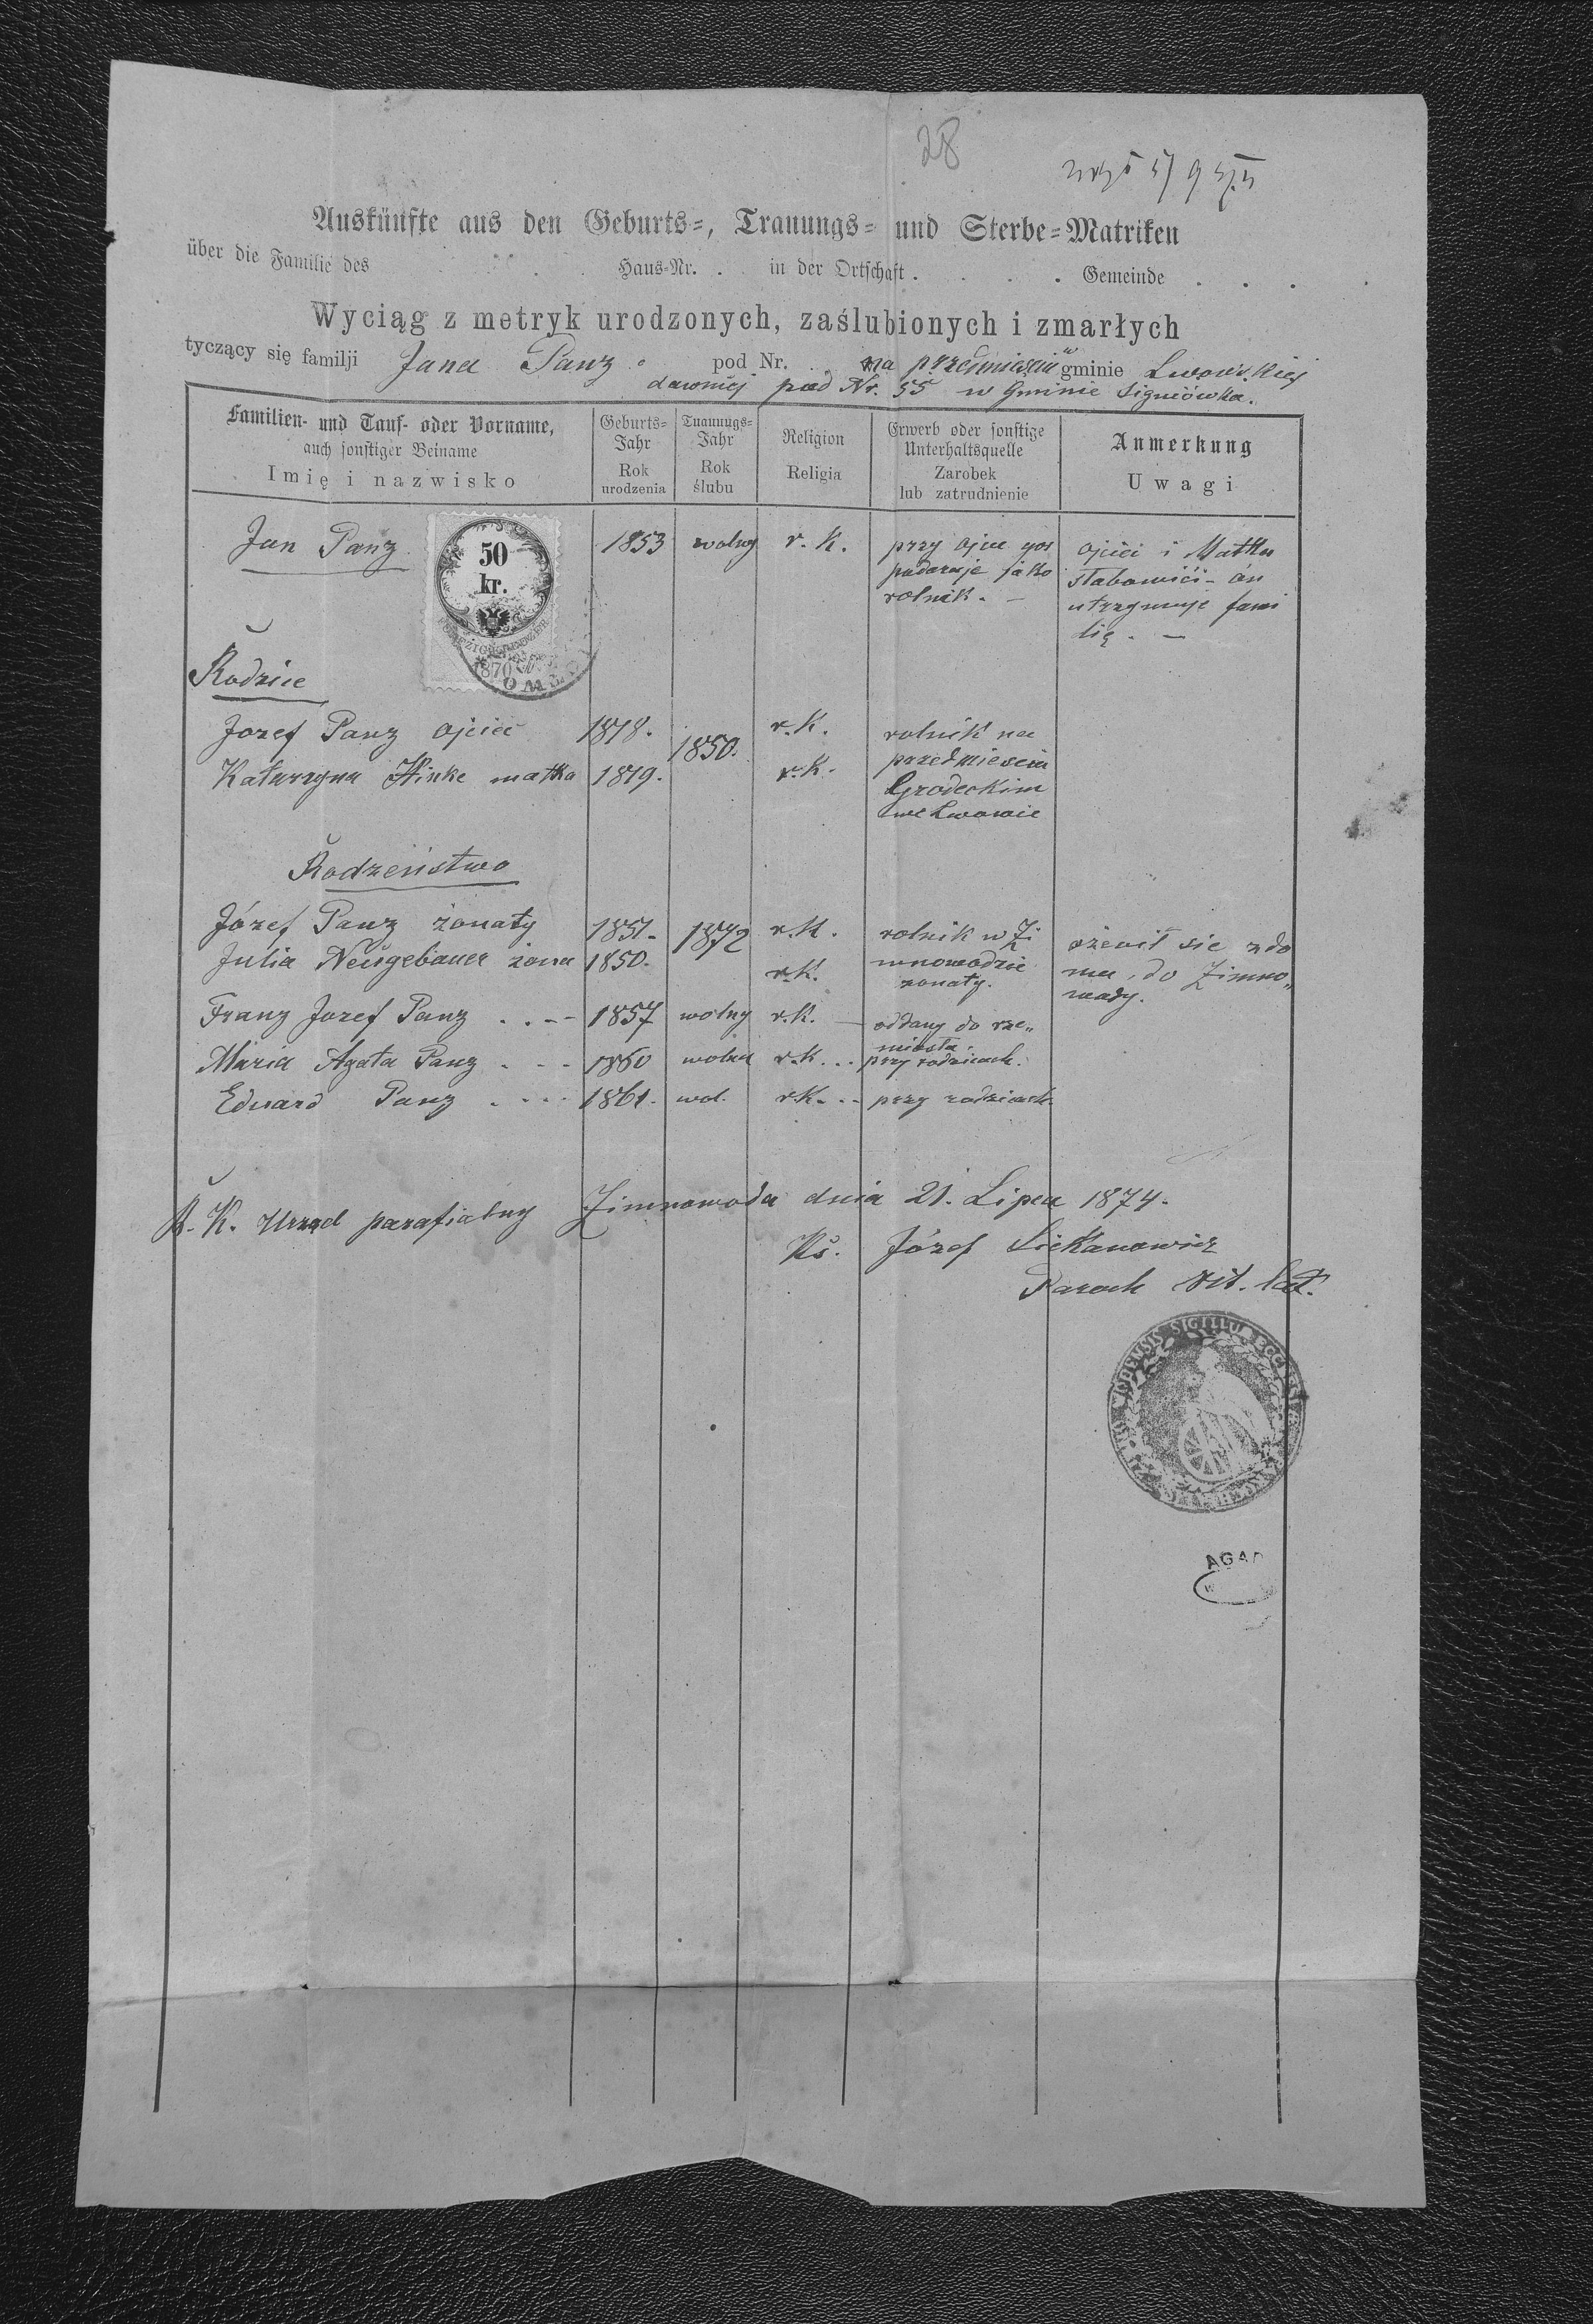 28
Auskünfte aus den Geburts-, Trauungs- und Sterbe-Matriken
über die Familie des . . . Haus-Nr. . in der Ortschaft . . . . Gemeinde . . . .
Wyciąg z metryk urodzonych, zaślubionych i zmarłych
tyczący się familji Jana Panz pod Nr. . . na przedmieściu w gminie Lwowskiej
dawniej pod Nr. 55 w Gminie Signiówka.
Familien- und Tauf- oder Vorname,
auch sonstiger Beiname
Imię i nazwisko
Geburts-
Jahr
Rok
urodzenia
Trauungs-
Jahr
Rok
ślubu
Religion
Religia
Erwerb oder sonstige
Unterhaltsquelle
Zarobek
lub zatrudnienie
Anmerkung
Uwagi
Jan Panz 1853 wolny r. K.
przy ojcu gos
podaruje jako
rolnik. —
ojciec i Matka
słabowici - on
utrzymuje fami
lię. —
50
kr.
1870
Rodzice
Jozef Panz ojciec 1818. 1850. r. K.
Katarzyna Hinke matka 1819. r. K.
rolnik na
przedmieściu
Grodeckim
we Lwowie
Rodzeństwo
Józef Panz żonaty 1851. 1872 r. K.
Julia Neugebauer żona 1850. r. K.
rolnik w Zi
mnowodzie
żonaty.
ożenił sie z do
mu do Zimno„
wody.
Franz Jozef Panz . . - - 1857 wolny r. K. — oddany do rze„
miosła.
Maria Agata Panz . - - 1860 wolna r. K . . . przy rodzicach.
Edward Panz . . - - 1861. wol. r. K - . . przy rodzicach.
R. K. Urząd parafialny Zimnowoda dnia 21. Lipca 1874.
Ks. Józef Siekanowicz
Paroch rit. lat.
SIGILLUM
AGAD